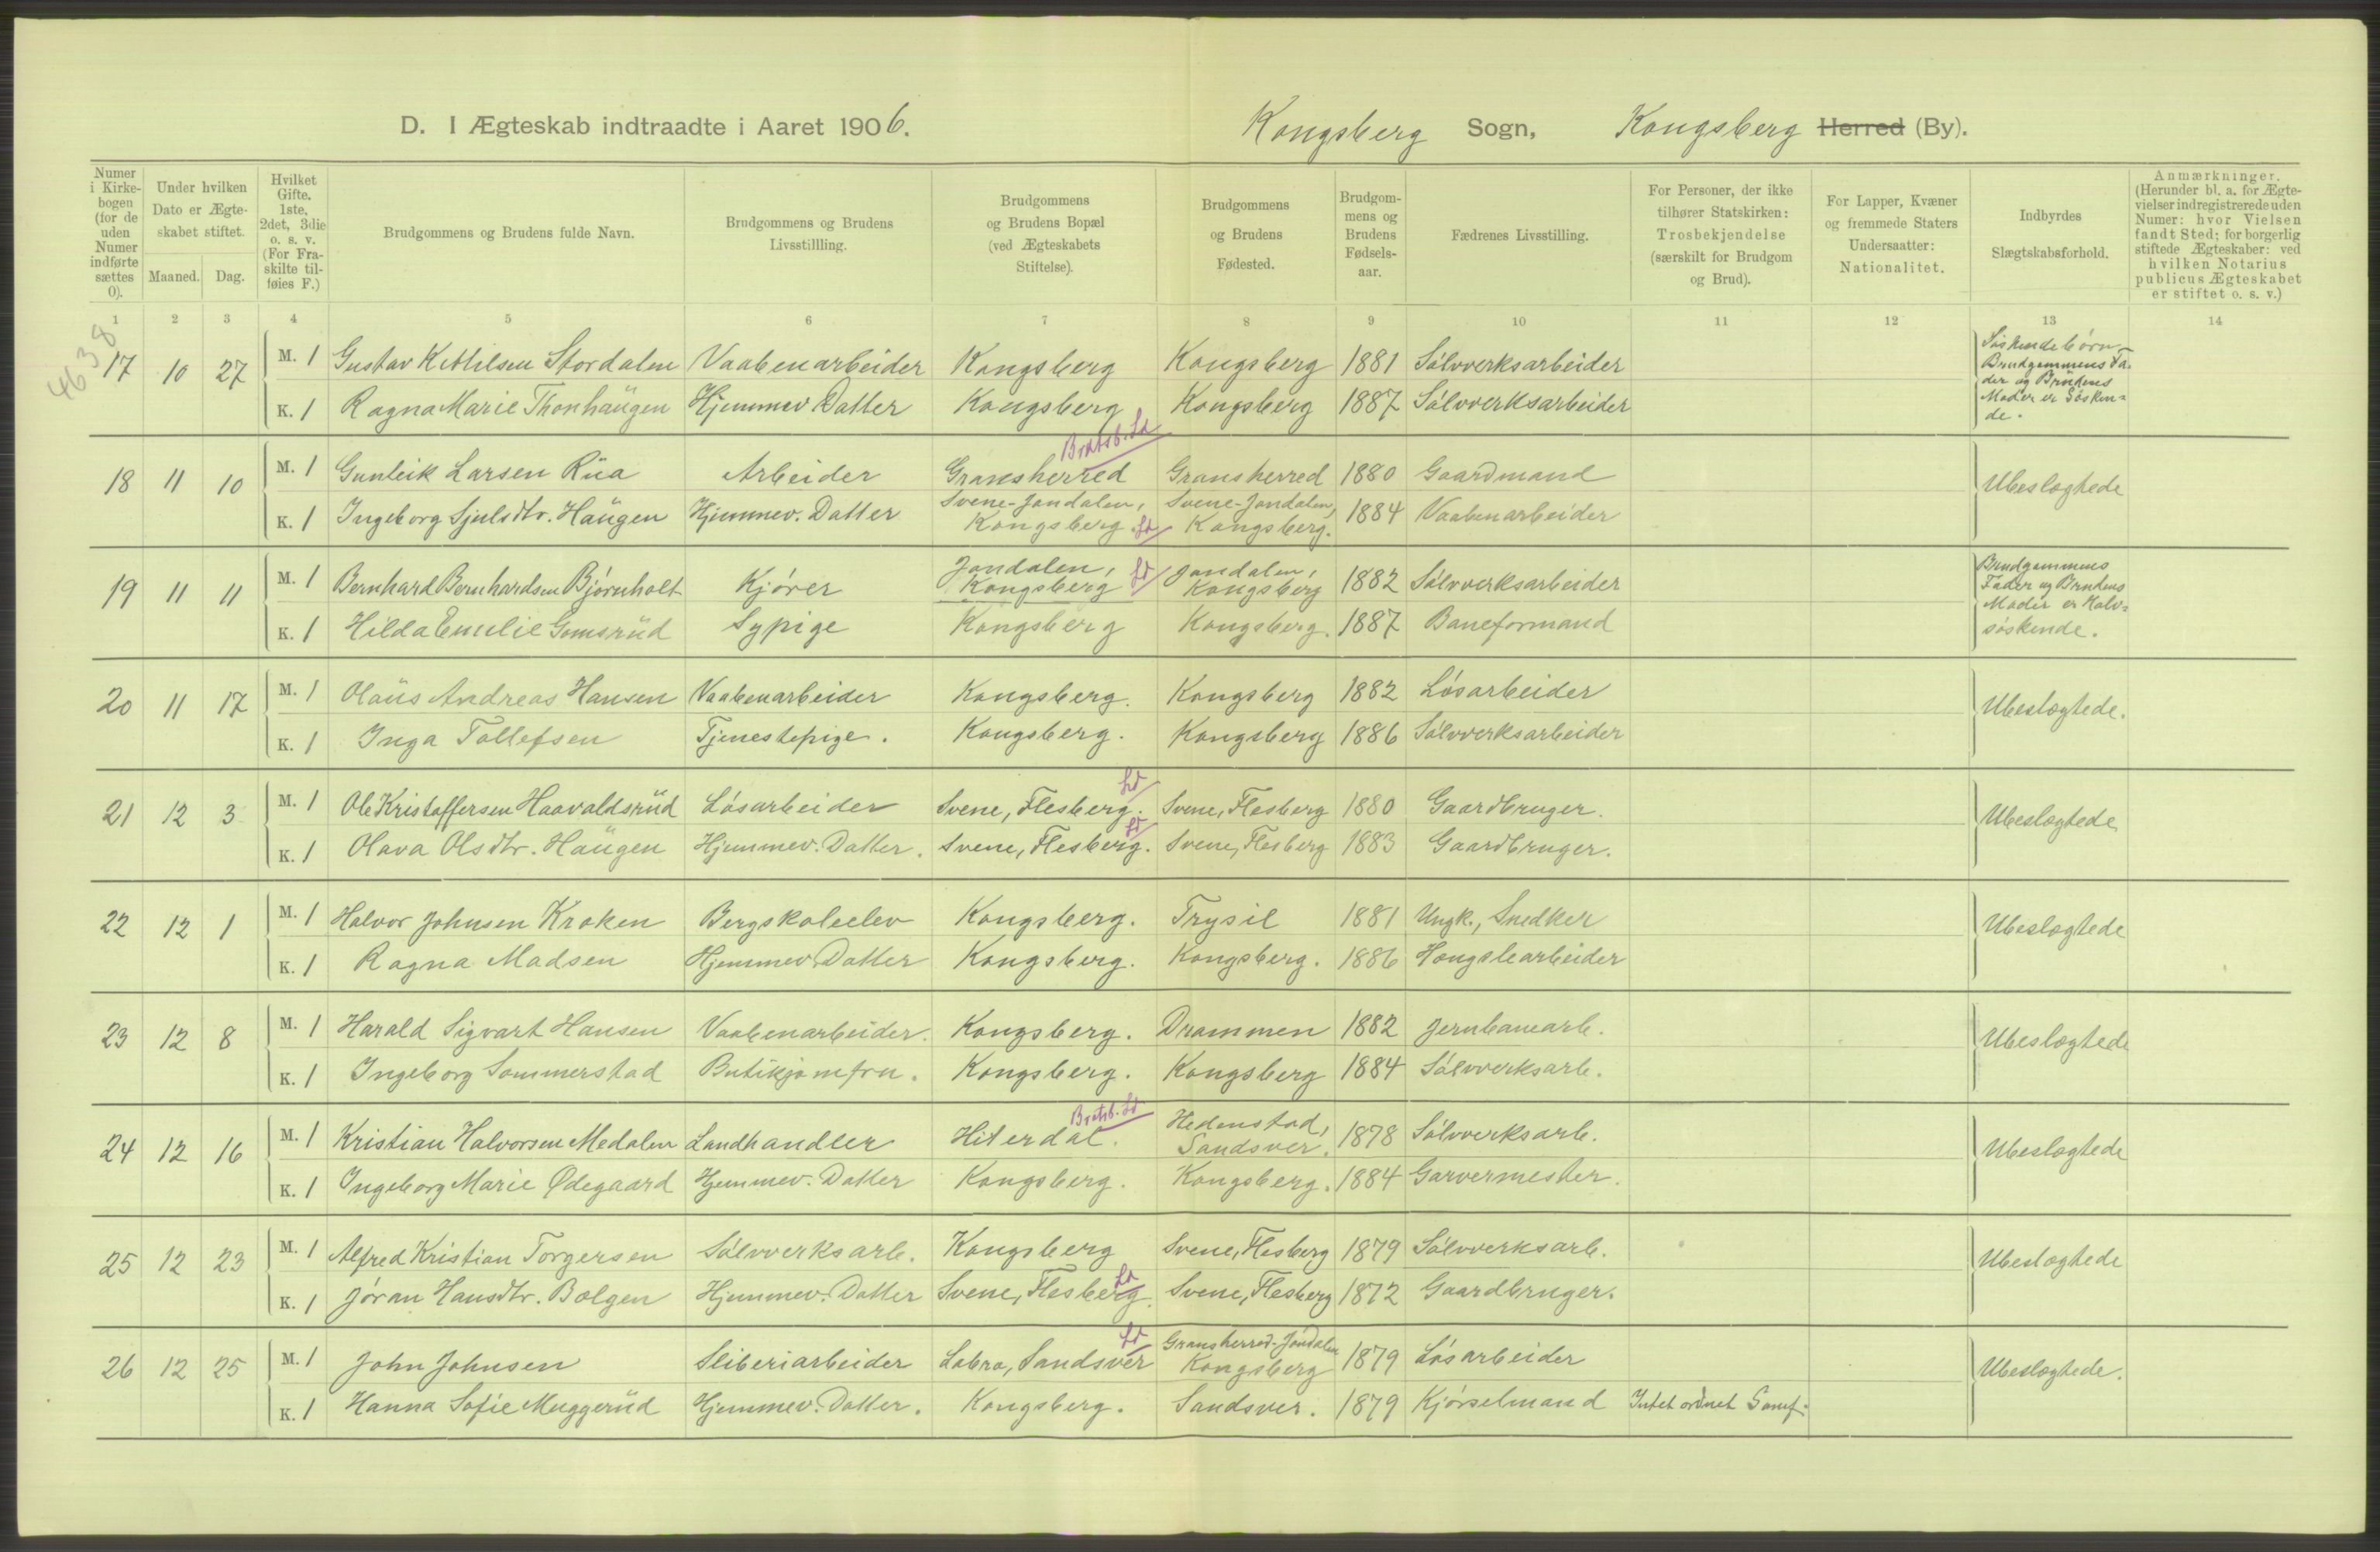 D. I Ægteskab indtraadte i Aaret 1906. Kongsberg Sogn, Kongsberg Herred (By).
Numer i Kirkebogen (for de uden Numer indførte sættes 0). Under hvilken Dato er Ægteskabet stiftet. Maaned. Dag. Hvilket Gifte. 1ste, 2det, 3die o. s. v. (For Fraskilte tilføies F.) Brudgommens og Brudens fulde Navn. Brudgommens og Brudens Livsstillling. Brudgommens og Brudens Bopæl (ved Ægteskabets Stiftelse). Brudgommens og Brudens Fødested. Brudgommens og Brudens Fødselsaar. Fædrenes Livsstilling. For Personer, der ikke tilhører Statskirken: Trosbekjendelse (særskilt for Brudgom og Brud). For Lapper, Kvæner og fremmede Staters Undersaatter: Nationalitet. Indbyrdes Slægtskabsforhold. Anmærkninger. (Herunder bl. a. for Ægtevielser indregistrerede uden Numer: hvor Vielsen fandt Sted; for borgerlig stiftede Ægteskaber: ved hvilken Notarius publicus Ægteskabet er stiftet o. s. v.)
1 2 3 4 5 6 7 8 9 10 11 12 13 14
4638
17 10 27 M. 1 Gustav Kittilsen Stordalen Vaabenarbeider Kongsberg Kongsberg 1881 Sölvverksarbeider Söskendebörn- Brudgommens Fader og Brudens Moder er Sösken=de.
K. 1 Ragna Marie Thonhaŭgen Hjemmev Datter Kongsberg Kongsberg 1887 Sölvverksarbeider
Bratsb. Ld
18 11 10 M. 1 Gunleik Larsen Rŭa Arbeider Gransherred Gransherred 1880 Gaardmand Ubeslægtede
K. 1 Ingeborg Sjulsdtr. Haŭgen Hjemmev. Datter Svene-Jondalen, Kongsberg Ld Svene-Jondalen, Kongsberg. 1884 Vaabenarbeider
19 11 11 M. 1 Bernhard Bernhardsen Bjørnholt Kjörer Jondalen, Kongsberg Ld Jondalen, Kongsberg 1882 Sölvverksarbeider Brudgommens Fader og Brudens Moder er Halv=söskende.
K. 1 Hilda Emilie Gomsrŭd Sypige Kongsberg Kongsberg. 1887 Baneformand
20 11 17 M. 1 Olaŭs Andreas Hansen Vaabenarbeider Kongsberg. Kongsberg 1882 Lösarbeider Ubeslægtede.
K. 1 Inga Tollefsen Tjenestepige. Kongsberg. Kongsberg 1886 Sölvverksarbeider
21 12 3 M. 1 Ole Kristoffersen Haavaldsrŭd Lösarbeider Svene, Flesberg. Ld Svene, Flesberg 1880 Gaardbruger. Ubeslægtede
K. 1 Olava Olsdtr. Haŭgen Hjemmev. Datter. Svene, Flesberg. Ld Svene, Flesberg 1883 Gaardbruger.
22 12 1 M. 1 Halvor Johnsen Kroken Bergskoleelev Kongsberg. Trysil 1881 Ungk., Snedker Ubeslægtede
K. 1 Ragna Madsen Hjemmev Datter Kongsberg. Kongsberg. 1886 Hængslearbeider
23 12 8 M. 1 Harald Sigvart Hansen Vaabenarbeider. Kongsberg. Drammen 1882 Jernbanearb. Ubeslægtede
K. 1 Ingeborg Sommerstad Butikjomfru. Kongsberg. Kongsberg 1884 Sölvverksarb.
Bratsb. Ld
24 12 16 M. 1 Kristian Halvorsen Medalen Landhandler Hiterdal. Hedenstad, Sandsver. 1878 Sölvverksarb. Ubeslægtede
K. 1 Ingeborg Marie Ødegaard Hjemmev. Datter Kongsberg. Kongsberg. 1884 Garvermester.
25 12 23 M. 1 Alfred Kristian Torgersen Sölvverksarb. Kongsberg Svene, Flesberg 1879 Sölvverksarb. Ubeslægtede
K. 1 Jöran Hansdtr. Bolgen Hjemmev. Datter Svene, Flesberg. Ld Svene, Flesberg 1872 Gaardbruger.
26 12 25 M. 1 John Johnsen Sliberiarbeider Labro, Sandsver Ld Gransherred-Jondalen Kongsberg 1879 Lösarbeider Ubeslægtede.
K. 1 Hanna Sofie Muggerŭd Hjemmev. Datter. Kongsberg. Sandsver. 1879 Kjörselmand Intet ordnet Samf.